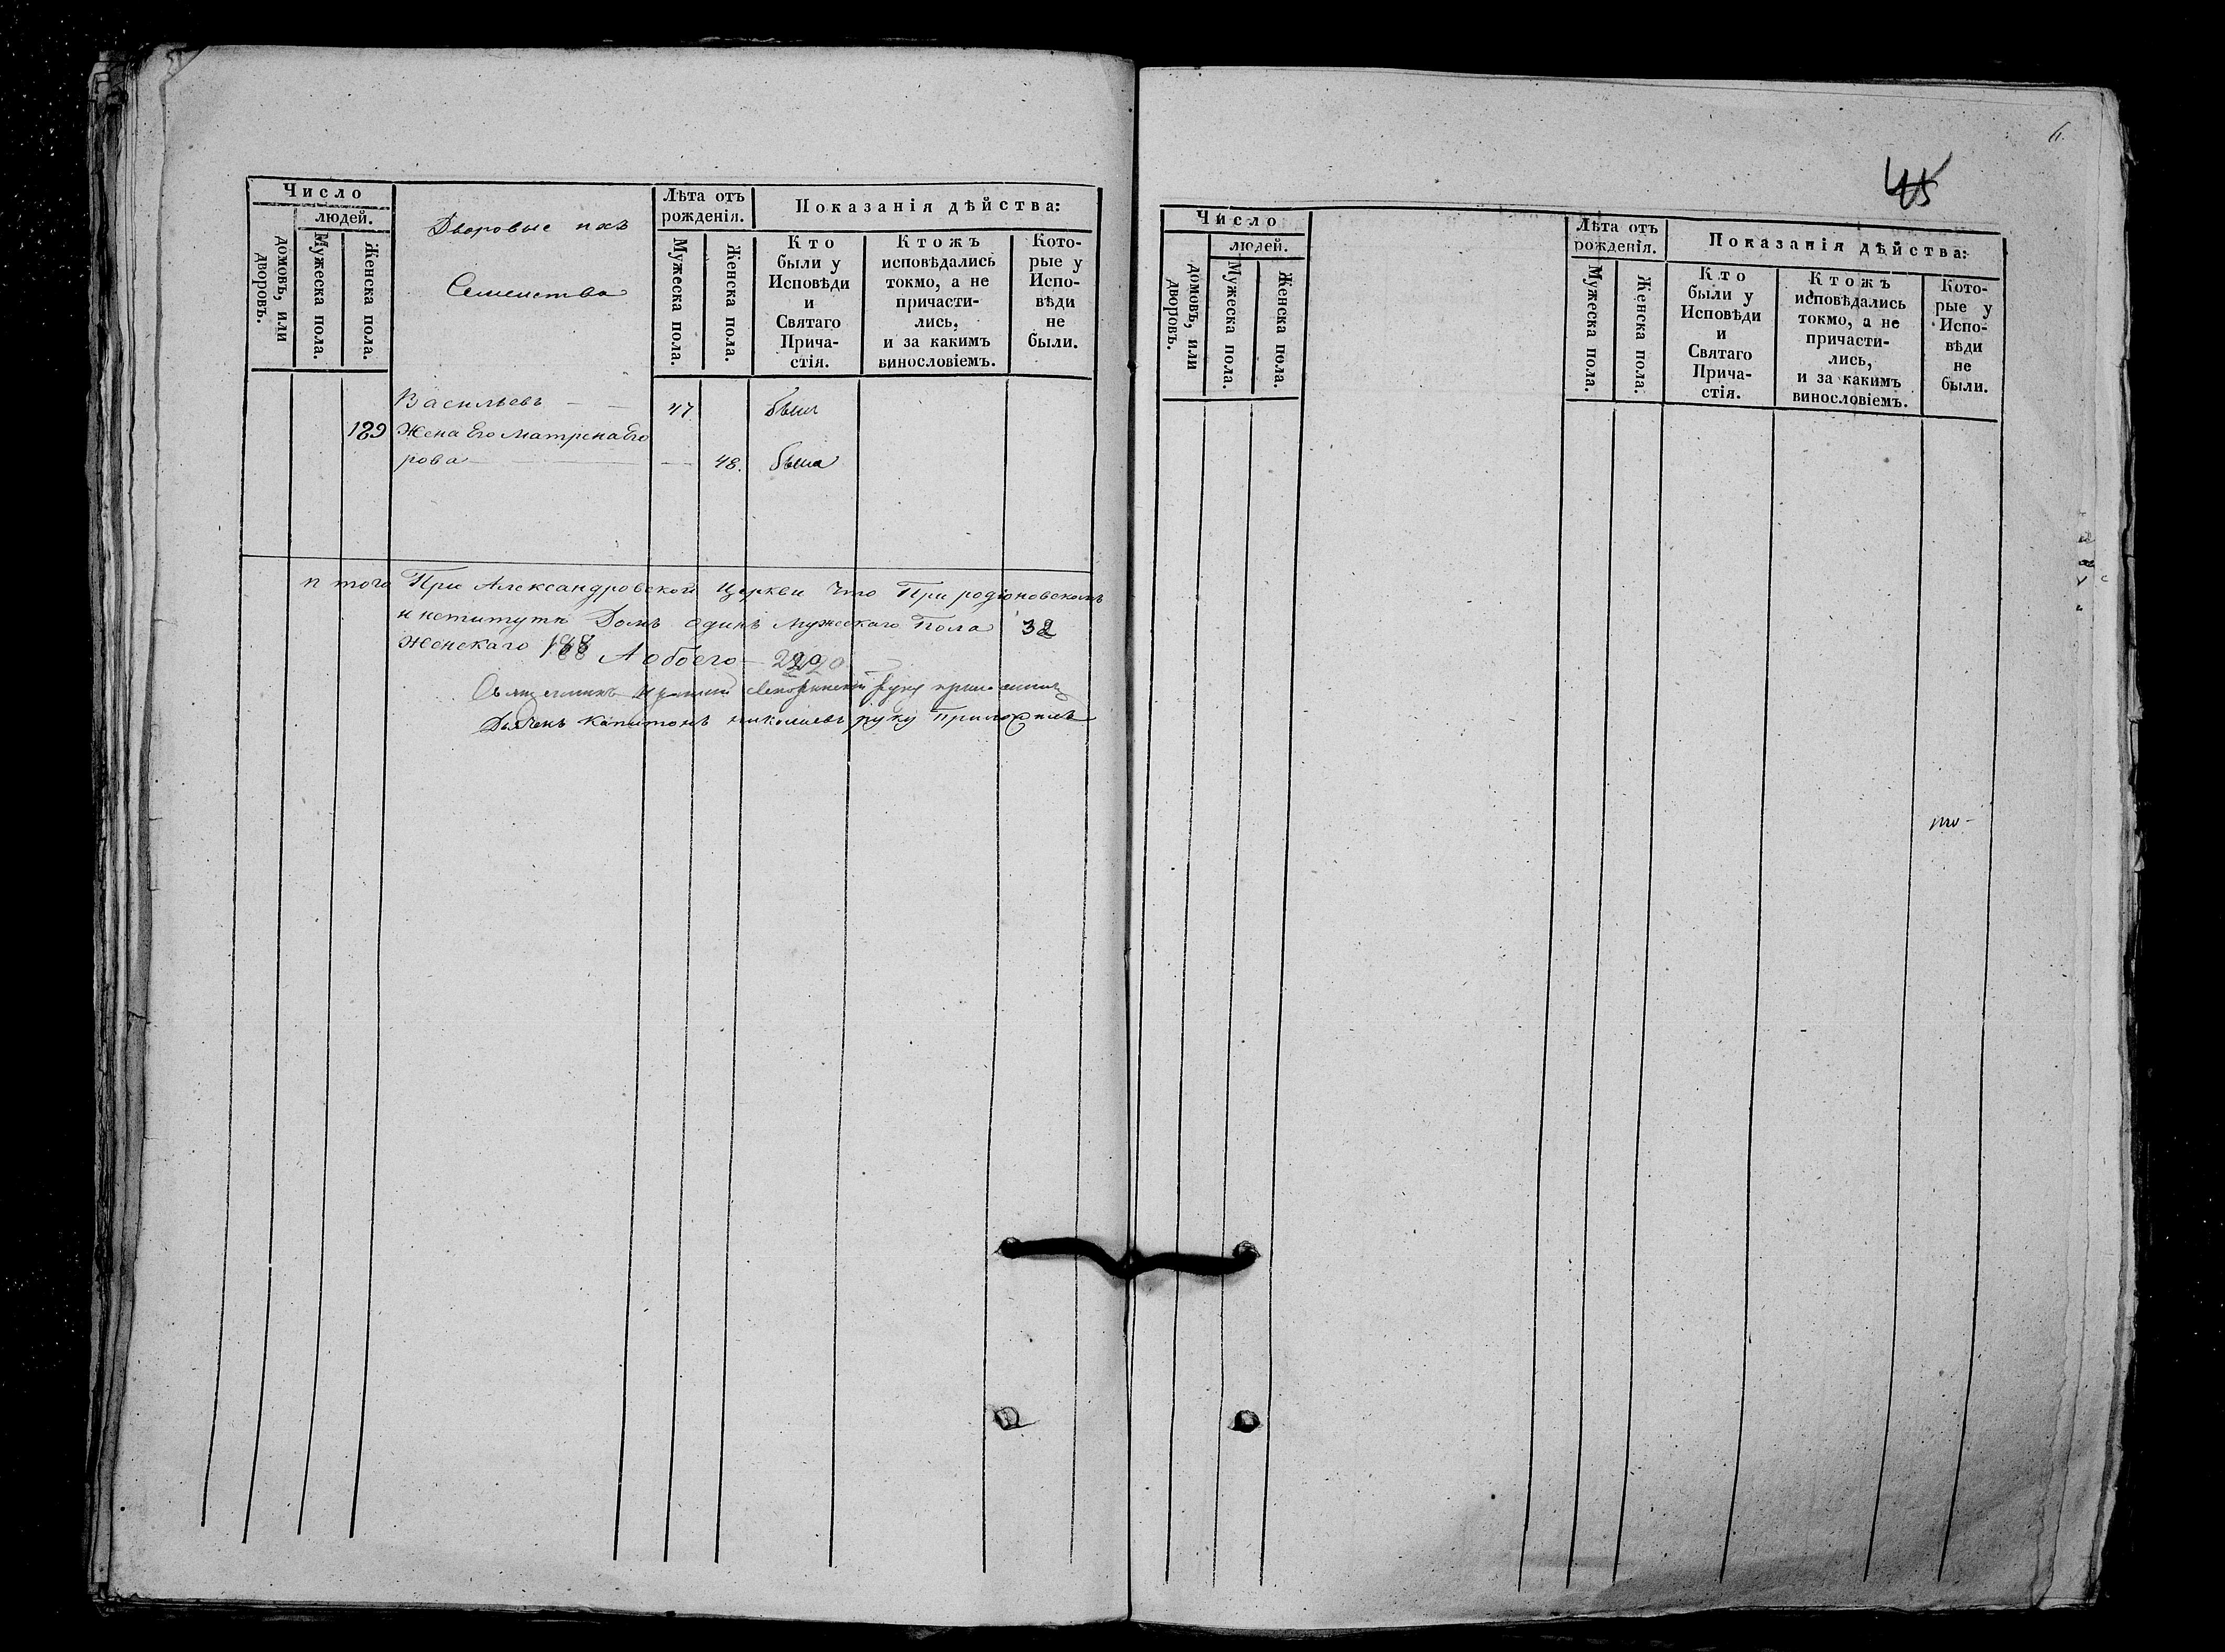 Число
людей.
домовъ, или
дворовъ.
Мужеска пола.
Женска пола.
Дворовые ихъ
Семейства
Лѣта отъ
рожденія.
Мужеска пола.
Женска пола.
Показанія дѣйства:
Кто
были у
Исповѣди
и
Святаго
Прича-
стія.
Ктожъ
исповѣдались
токмо, а не
причасти-
лись,
и за какимъ
винословіемъ.
Кото-
рые у
Испо-
вѣди
не
были.
Васильевъ 47 былъ
189 Жена Его Матрена Его
рова 48. была
итого При Александровской Церкви что При родіоновскомъ
институтѣ Домъ одинъ Мужескаго Пола 32
Женскаго 188 А обоего
Священникъ руку приложилъ
Дьячекъ Капитонъ николаевъ руку Приложилъ
6.
45
Число
людей.
домовъ, или
дворовъ.
Мужеска пола.
Женска пола.
Лѣта отъ
рожденія.
Мужеска пола.
Женска пола.
Показанія дѣйства:
Кто
были у
Исповѣди
и
Святаго
Прича-
стія.
Ктожъ
исповѣдались
токмо, а не
причасти-
лись,
и за какимъ
винословіемъ.
Кото-
рые у
Испо-
вѣди
не
были.